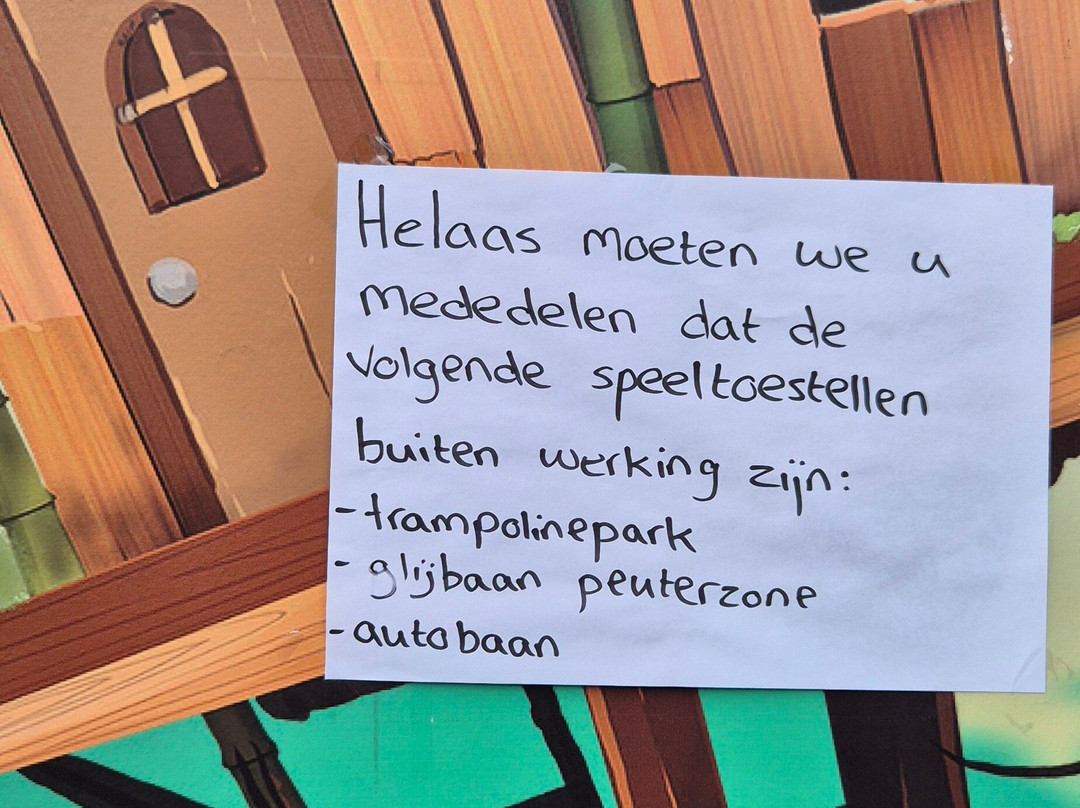 Helaas moeten we u
mededelen dat de
volgende speeltoestellen
buiten werking zijn:
- trampolinepark
- glijbaan peuterzone
- autobaan